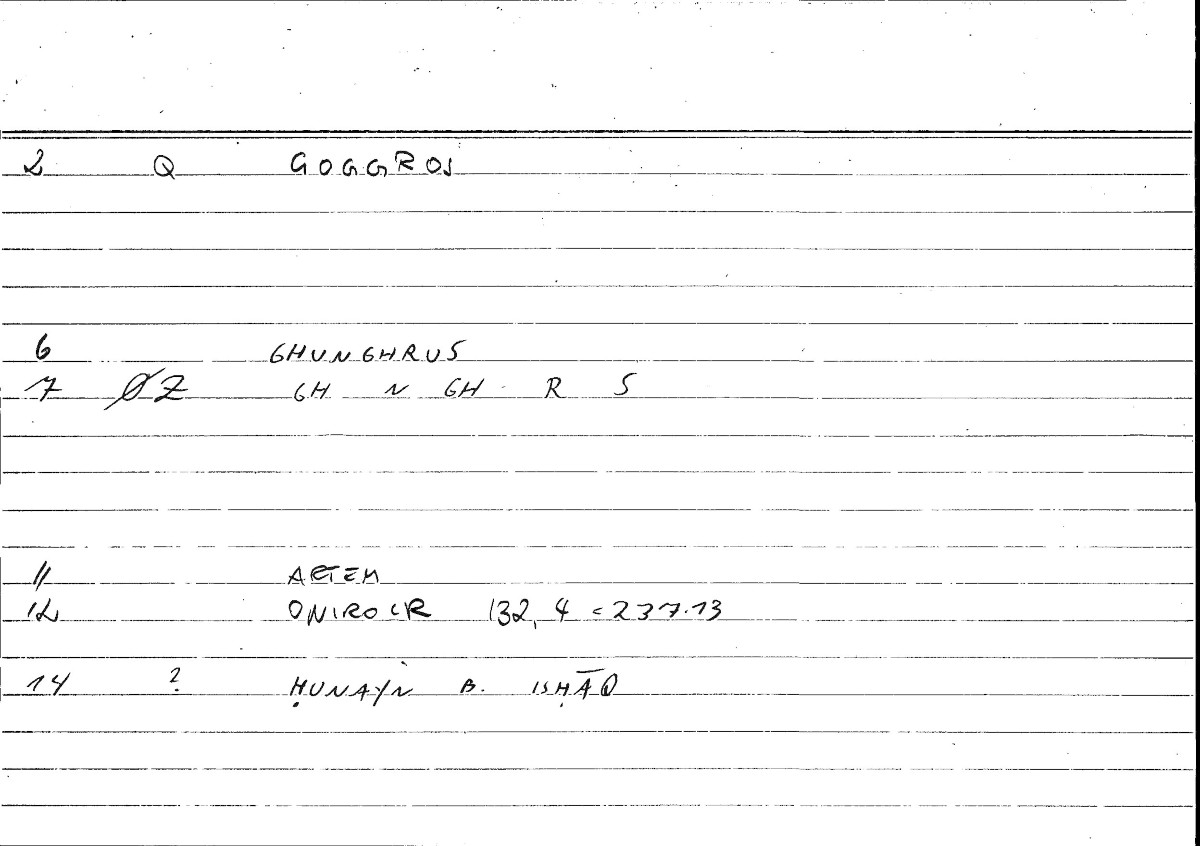 2 Q GOGGROS
6 GHUNGHRUS
7 ØZ GH N GH R S
11 ARTEM
12 ONIROCR 132, 4 = 237.13
14 ? ḤUNAYN B. ISḤĀQ